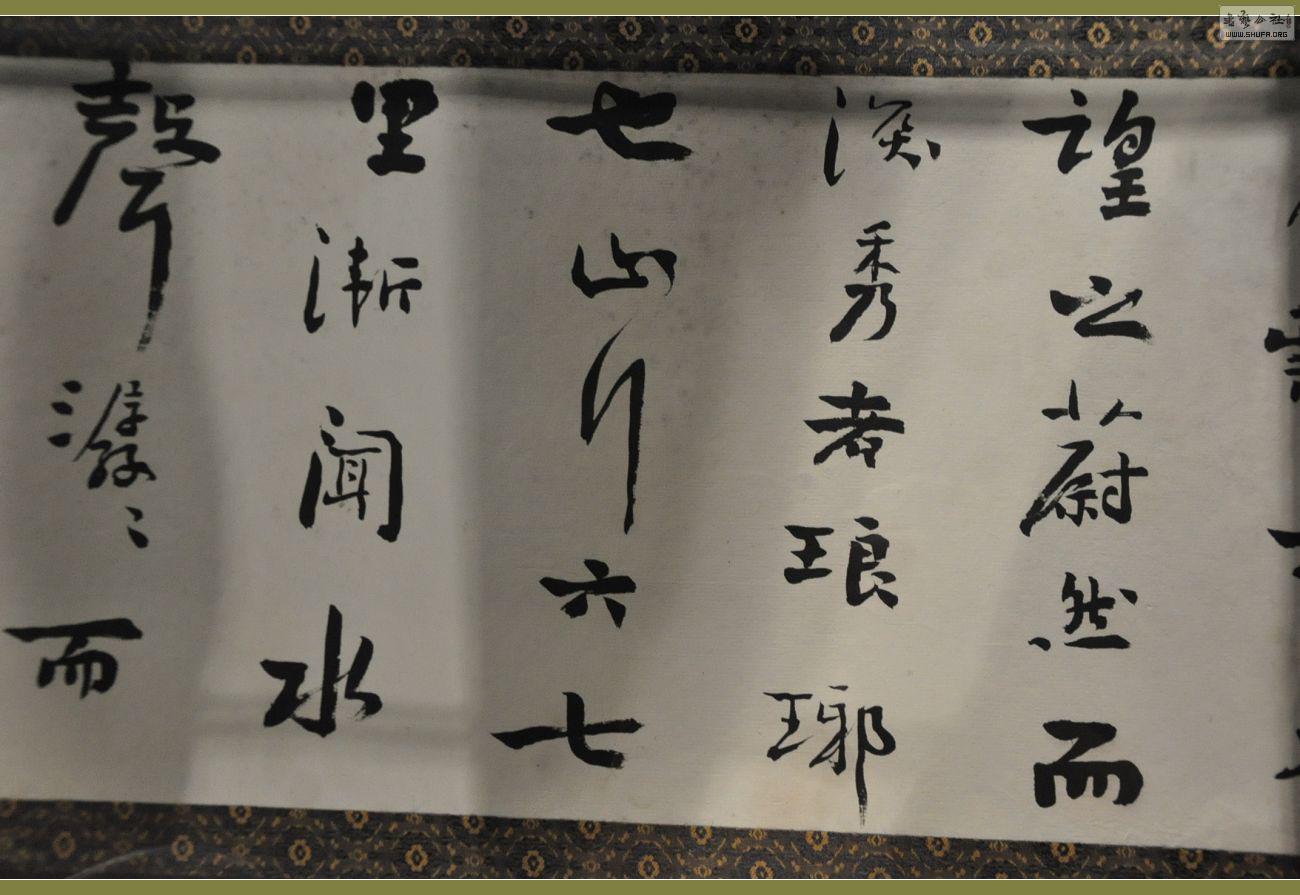 望之蔚然而
深秀者琅琊
也山行六七
里漸聞水
聲潺〻而
書藝公社
WWW.SHUFA.ORG